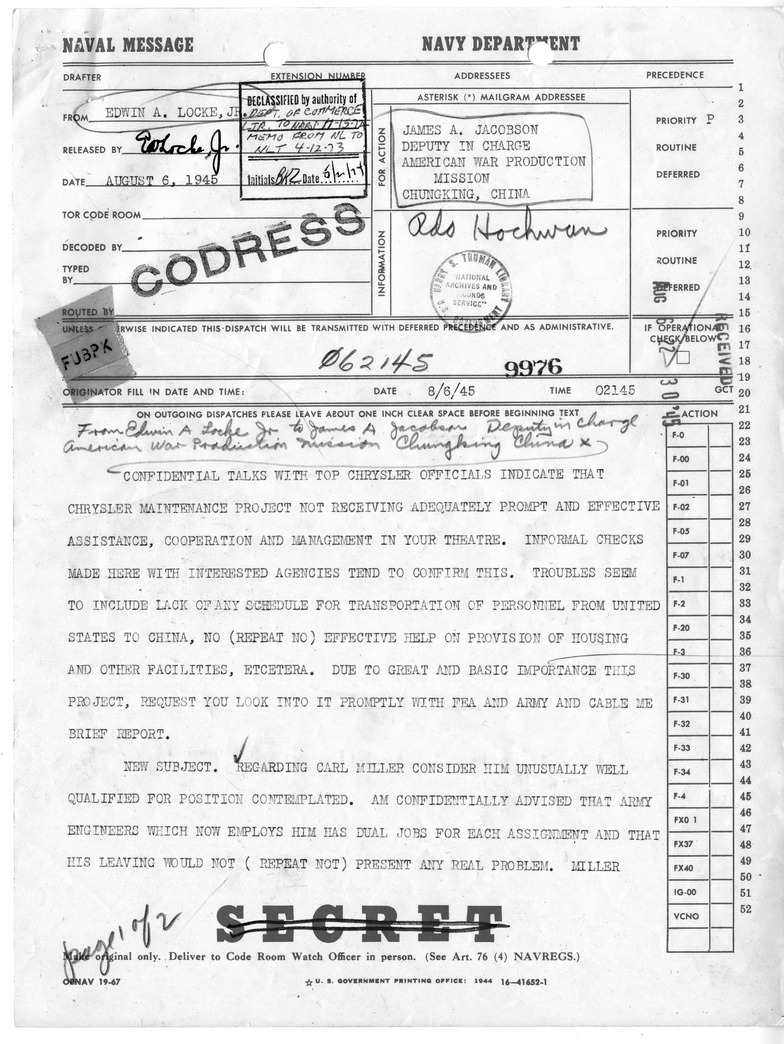 NAVAL MESSAGE NAVY DEPARTMENT
DRAFTER EXTENSION NUMBER ADDRESSEES PRECEDENCE
FROM EDWIN A. LOCKE, JR.
RELEASED BY E A Locke, Jr.
DATE AUGUST 6, 1945
TOR CODE ROOM
DECODED BY
TYPED
BY
ROUTED BY
CODRESS
FUBPK
DECLASSIFIED by authority of
DEPT. OF COMMERCE
MEMO FROM NL TO
NLT 4-12-73
Initials Date
ASTERISK (*) MAILGRAM ADDRESSEE
FOR ACTION
JAMES A. JACOBSON
DEPUTY IN CHARGE
AMERICAN WAR PRODUCTION
MISSION
CHUNGKING, CHINA
PRIORITY P
ROUTINE
DEFERRED
INFORMATION
HARRY S. TRUMAN LIBRARY
"NATIONAL
ARCHIVES AND
RECORDS
SERVICE"
U.S. GOVERNMENT
PRIORITY
ROUTINE
DEFERRED
UNLESS OTHERWISE INDICATED THIS DISPATCH WILL BE TRANSMITTED WITH DEFERRED PRECEDENCE AND AS ADMINISTRATIVE.
IF OPERATIONAL
CHECK BELOW
RECEIVED
062145 9976
ORIGINATOR FILL IN DATE AND TIME: DATE 8/6/45 TIME 02145 GCT
ON OUTGOING DISPATCHES PLEASE LEAVE ABOUT ONE INCH CLEAR SPACE BEFORE BEGINNING TEXT
From Edwin A Locke Jr to James A Jacobson Deputy in charge
American War Production Mission Chungking China x
CONFIDENTIAL TALKS WITH TOP CHRYSLER OFFICIALS INDICATE THAT
CHRYSLER MAINTENANCE PROJECT NOT RECEIVING ADEQUATELY PROMPT AND EFFECTIVE
ASSISTANCE, COOPERATION AND MANAGEMENT IN YOUR THEATRE. INFORMAL CHECKS
MADE HERE WITH INTERESTED AGENCIES TEND TO CONFIRM THIS. TROUBLES SEEM
TO INCLUDE LACK OF ANY SCHEDULE FOR TRANSPORTATION OF PERSONNEL FROM UNITED
STATES TO CHINA, NO (REPEAT NO) EFFECTIVE HELP ON PROVISION OF HOUSING
AND OTHER FACILITIES, ETCETERA. DUE TO GREAT AND BASIC IMPORTANCE THIS
PROJECT, REQUEST YOU LOOK INTO IT PROMPTLY WITH FEA AND ARMY AND CABLE ME
BRIEF REPORT.
NEW SUBJECT. REGARDING CARL MILLER CONSIDER HIM UNUSUALLY WELL
QUALIFIED FOR POSITION CONTEMPLATED. AM CONFIDENTIALLY ADVISED THAT ARMY
ENGINEERS WHICH NOW EMPLOYS HIM HAS DUAL JOBS FOR EACH ASSIGNMENT AND THAT
HIS LEAVING WOULD NOT ( REPEAT NOT) PRESENT ANY REAL PROBLEM. MILLER
ACTION
F-0
F-00
F-01
F-02
F-05
F-07
F-1
F-2
F-20
F-3
F-30
F-31
F-32
F-33
F-34
F-4
FX0 1
FX37
FX40
IG-00
VCNO
1
2
3
4
5
6
7
8
9
10
11
12
13
14
15
16
17
18
19
20
21
22
23
24
25
26
27
28
29
30
31
32
33
34
35
36
37
38
39
40
41
42
43
44
45
46
47
48
49
50
51
52
page 1 of 2
SECRET
Make original only. Deliver to Code Room Watch Officer in person. (See Art. 76 (4) NAVREGS.)
OPNAV 19-67 ☆ U. S. GOVERNMENT PRINTING OFFICE: 1944 16-41652-1